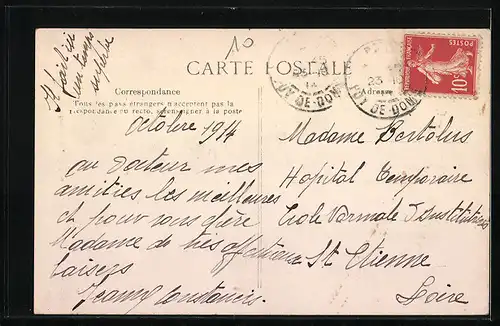 Il fait un
temps
superbe
10
CARTE POSTALE
Correspondance
Adresse
Tous les pays étrangers n'acceptent pas la
correspondance au recto, se renseigner à la poste
Octobre 1914
au docteur mes
amitiés les meilleures
et pour vous chère
Madame de très affectueux
baisers
Jeanne
Madame Bertolus
Hopital Temporaire
Ecole Normale d'Institutrices
St Etienne
Loire
PUY-DE-DOME
PUY-DE-DOME
POSTES
10c